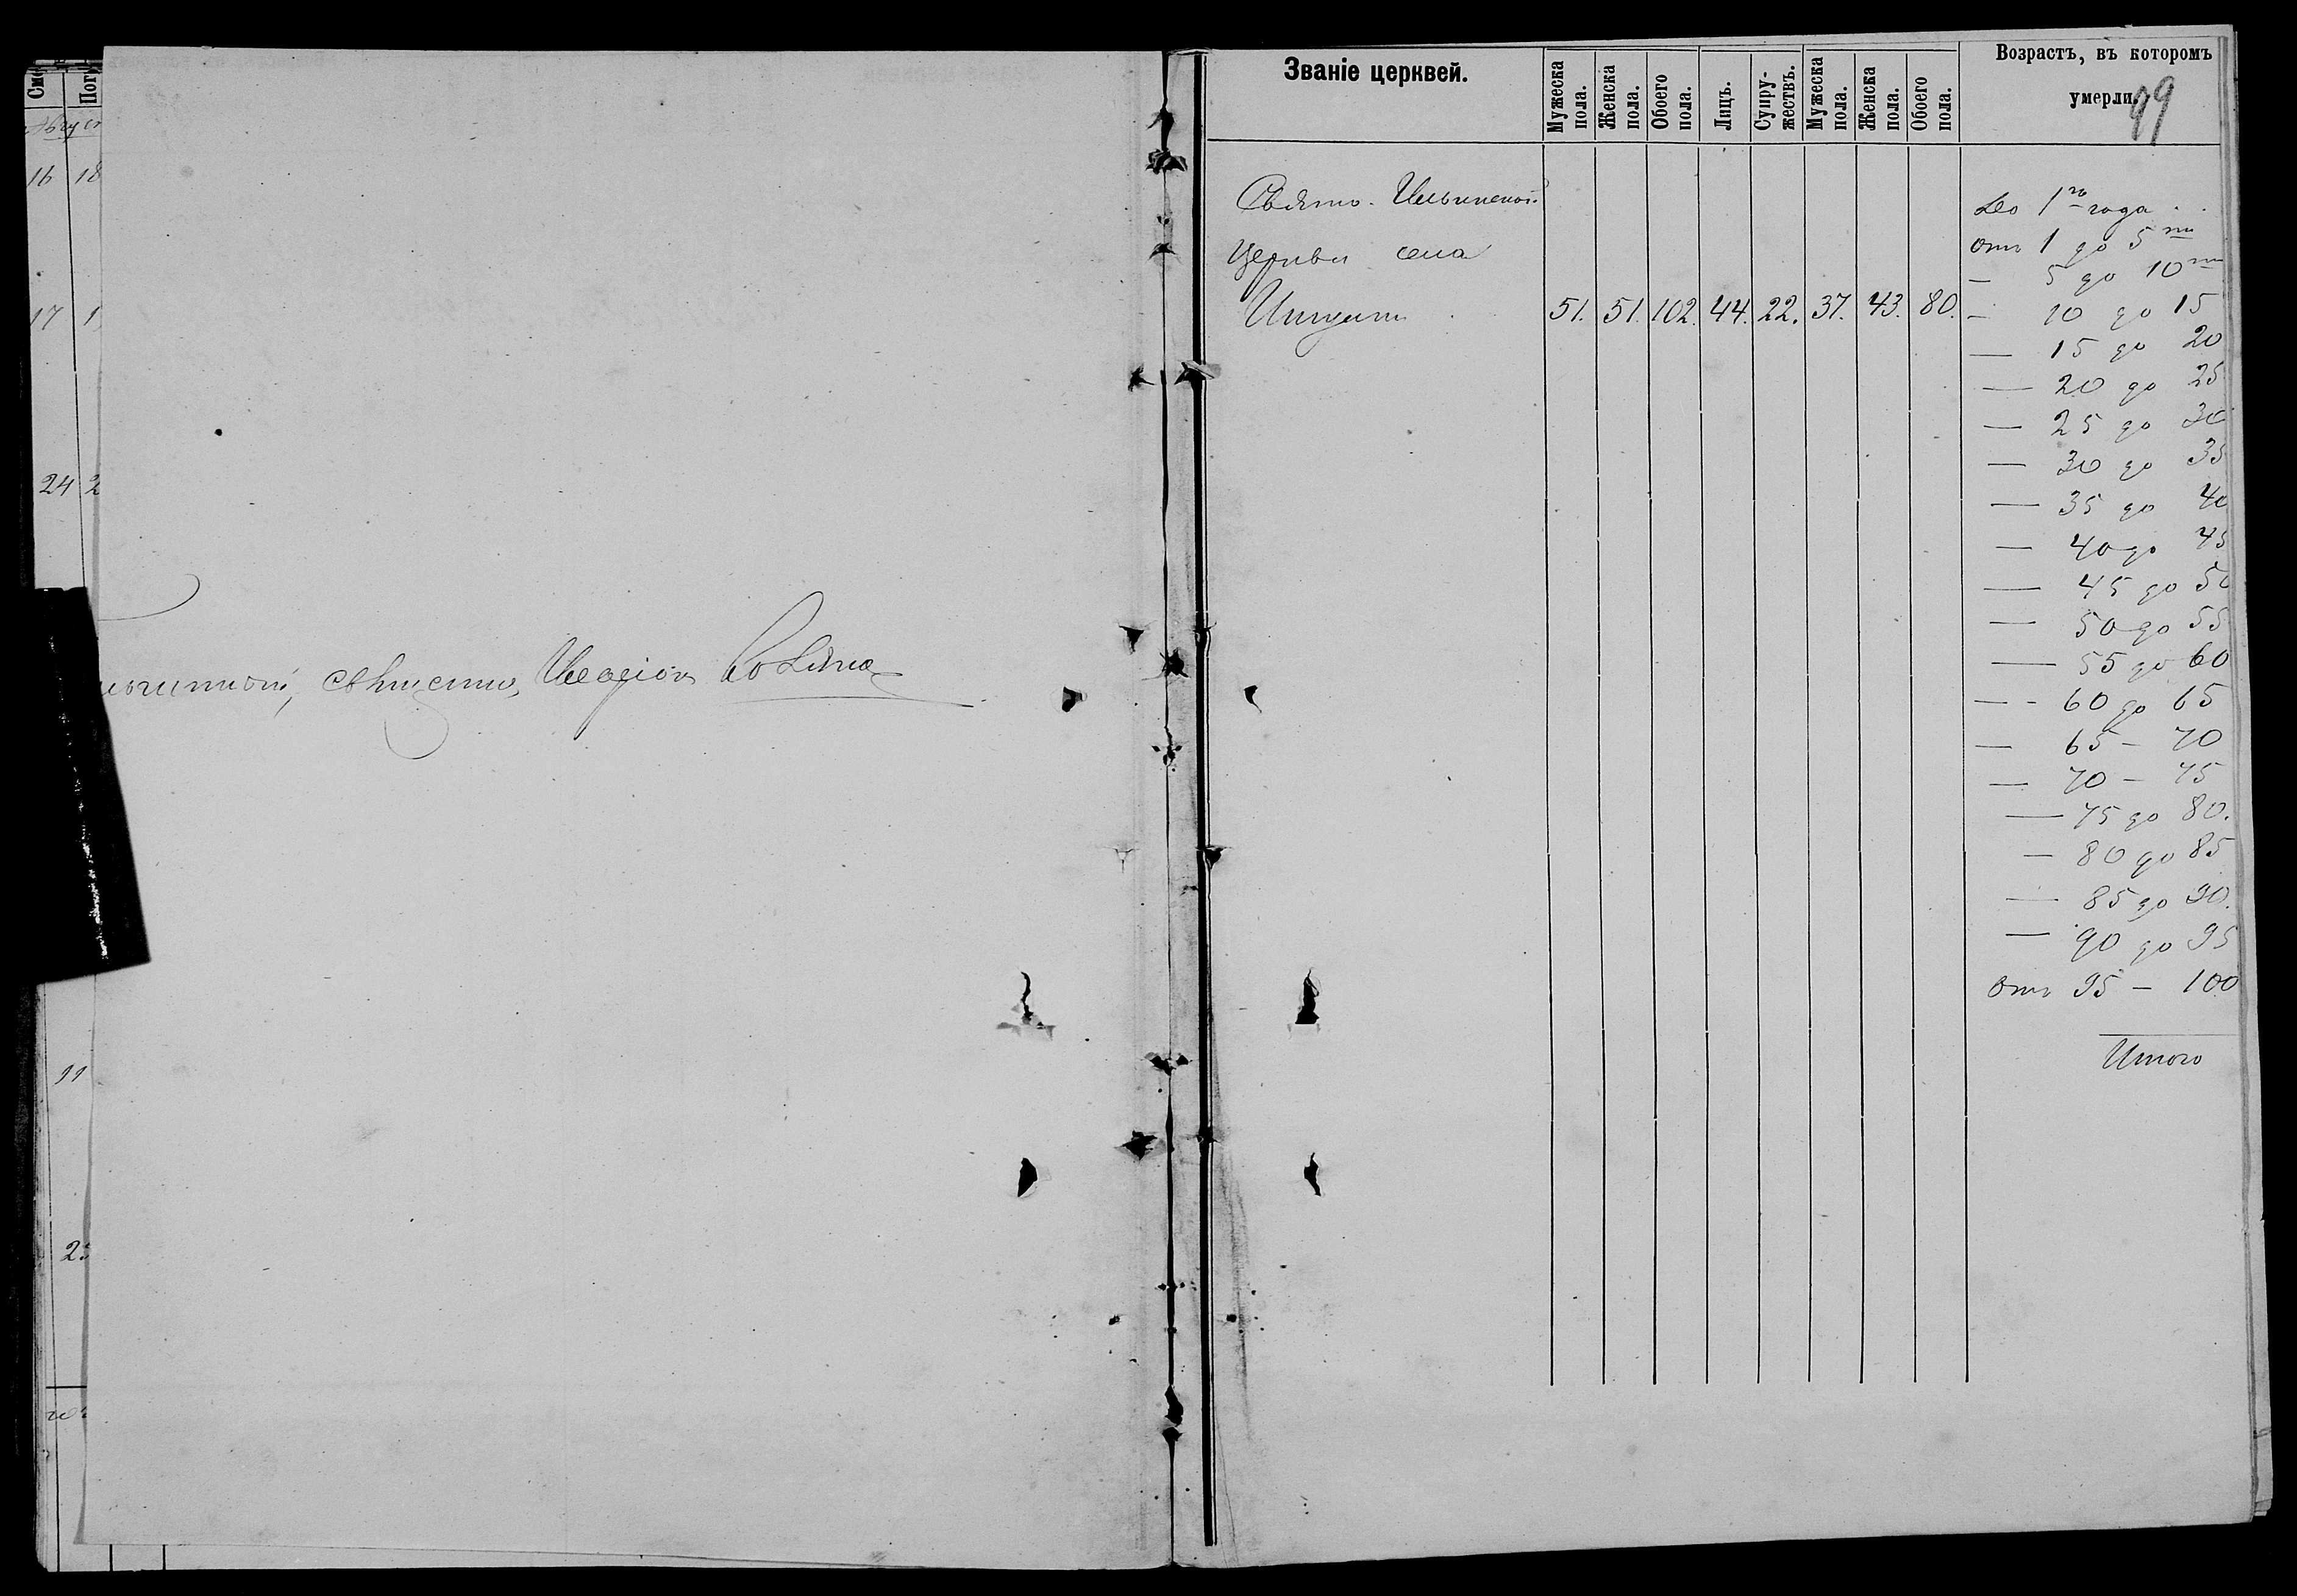 16 18
17 1
24 2
11
священно Иларіон
99
Званіе церквей.
Мужеска пола.
Женска пола.
Обоего пола.
Лицъ.
Супру-жествъ.
Мужеска пола.
Женска пола.
Обоего пола.
Возрастъ, въ которомъ
умерли.
Свято-Ильинской
Церкви села
51. 51. 102. 44. 22. 37. 43. 80.
До 1го года
отъ 1 до 5ти
— 5 до 10ти
— 10 до 15
— 15 до 20
— 20 до 25
— 25 до 30
— 30 до 35
— 35 до 40
— 40 до 45
— 45 до 50
— 50 до 55
— 55 до 60
— 60 до 65
— 65 — 70
— 70 — 75
— 75 до 80.
— 80 до 85
— 85 до 90.
— 90 до 95
отъ 95 — 100
Итого